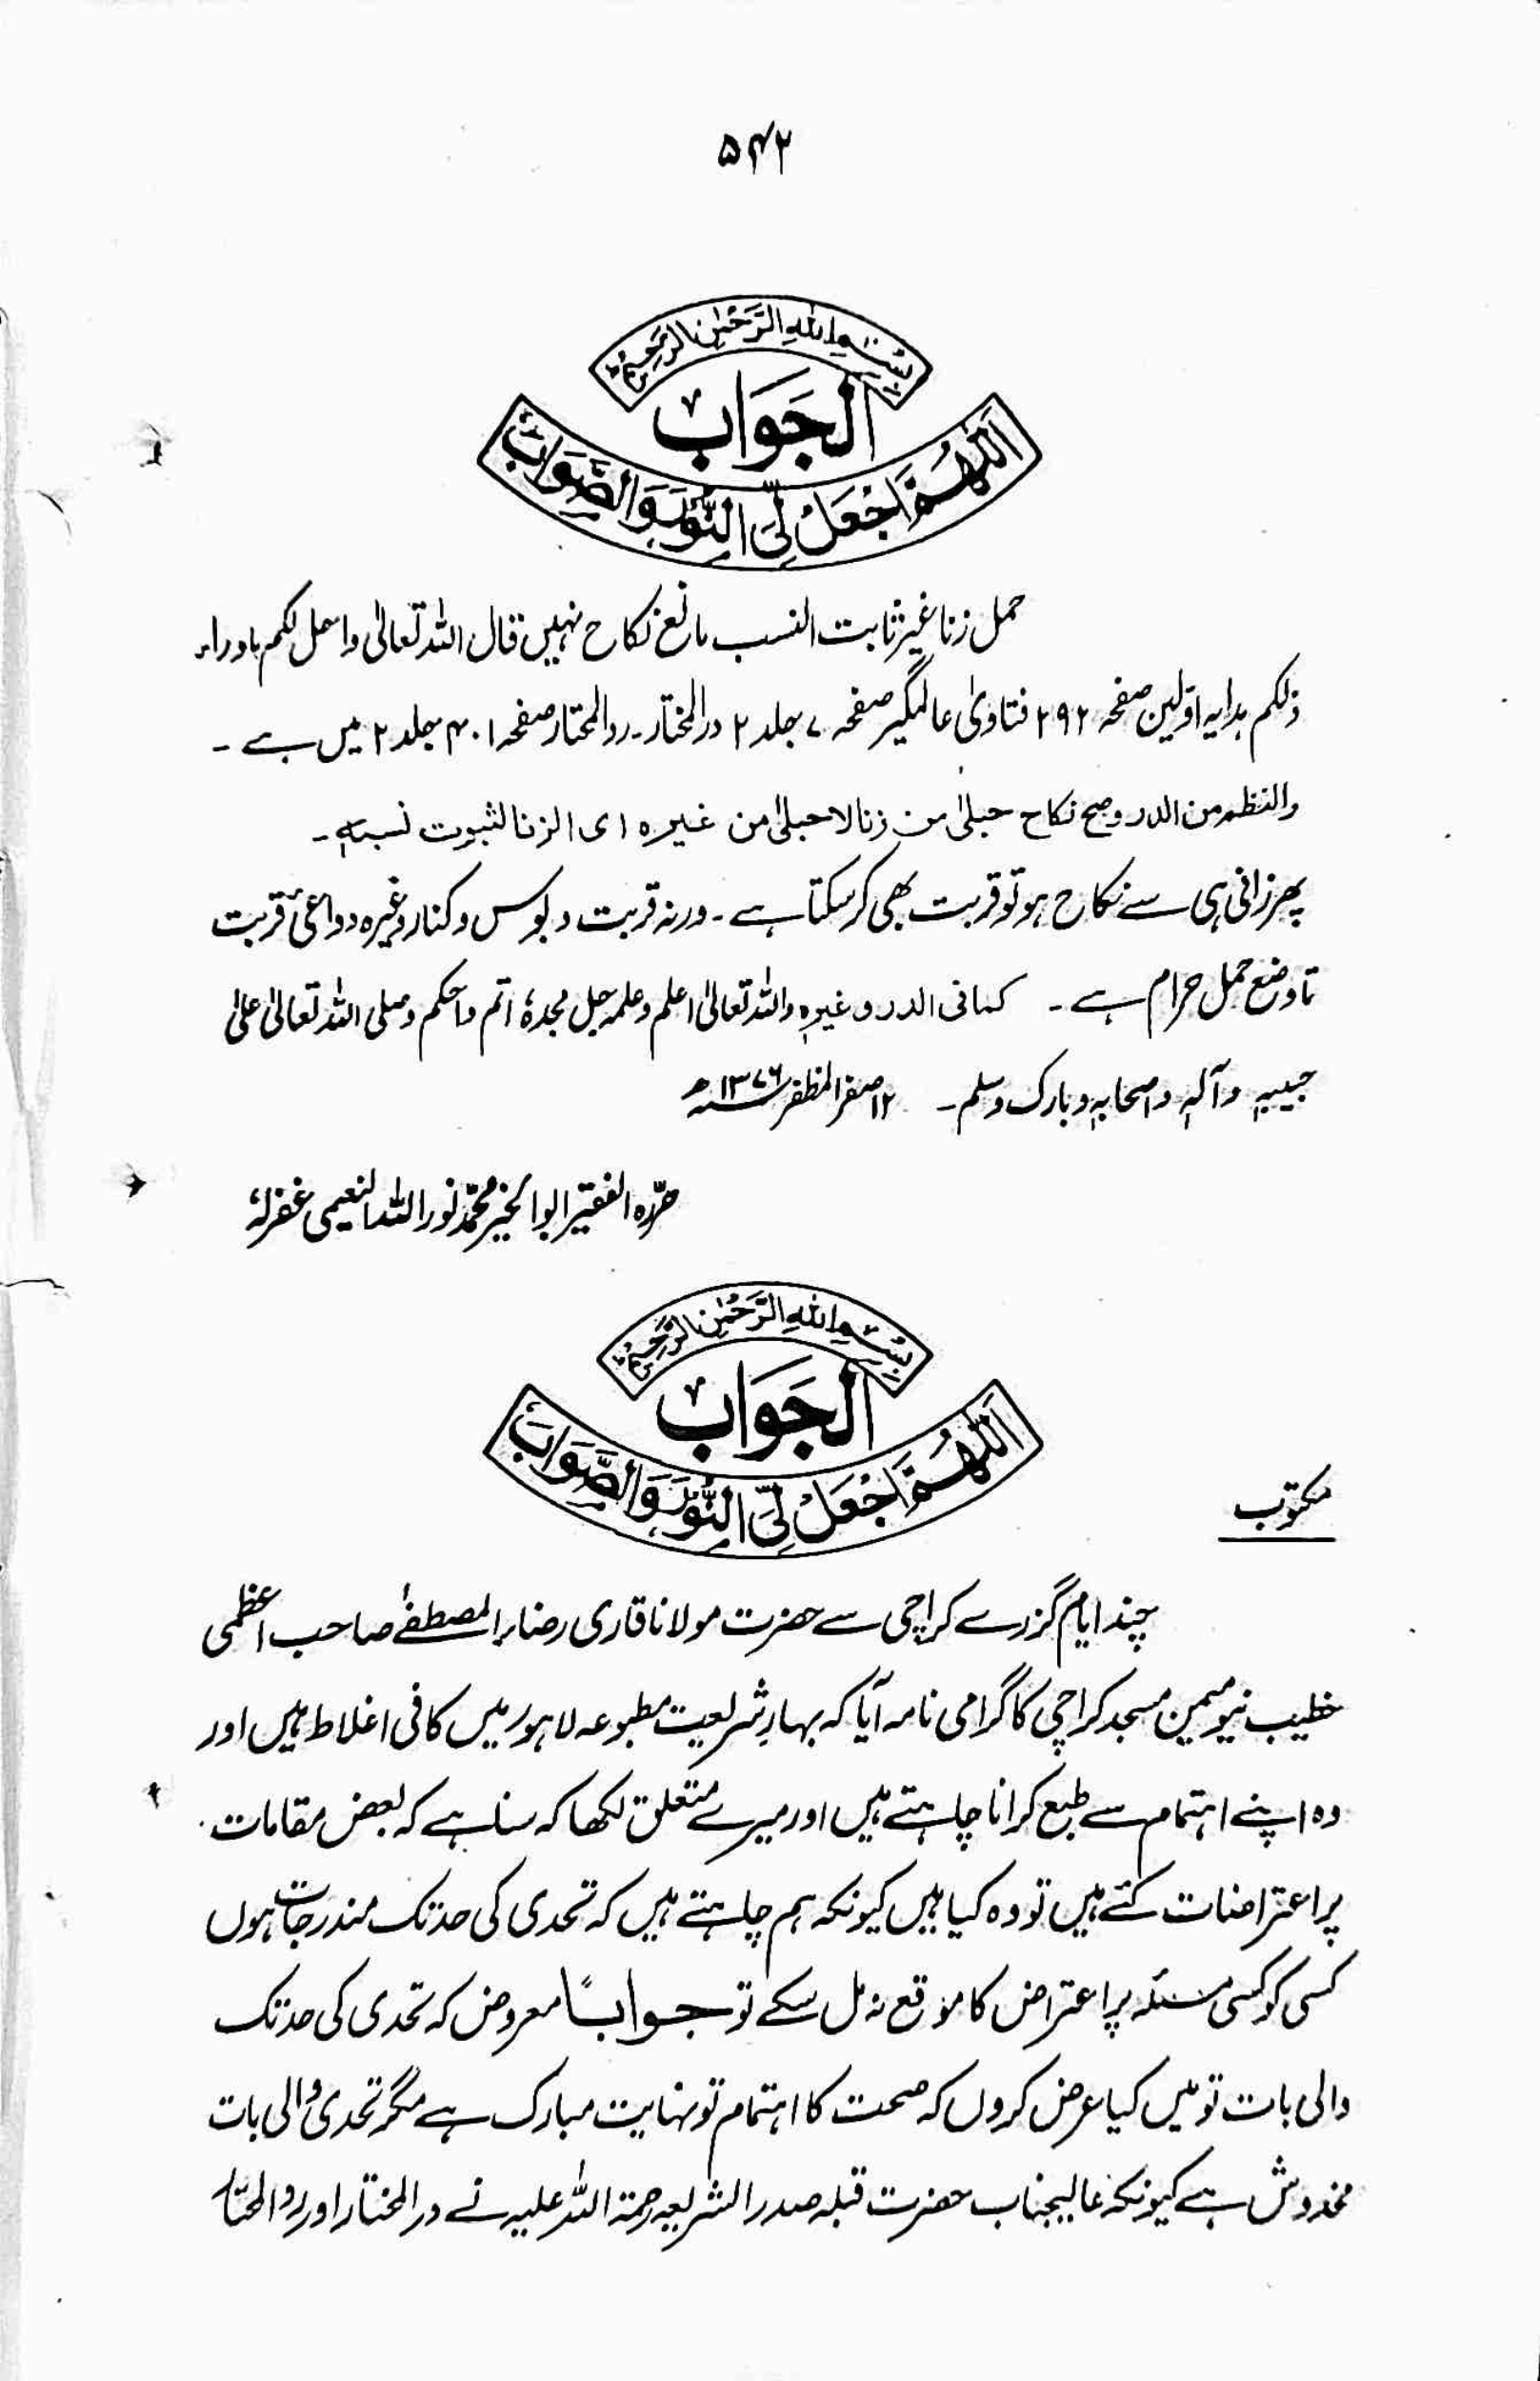 ۵۴۲
بِسْمِ اللهِ الرَّحْمٰنِ الرَّحِيْمِ
الجَوَابُ
اَللّٰهُمَّ اجْعَلْ لِّيَ النُّوْرَ وَالصَّوَابَ
حمل زنا غیر ثابت النسب مانع نکاح نہیں قال اللہ تعالیٰ واحل لکم ماوراء
ذلکم ہدایہ اوّلین صفحہ ۲۹۲ فتاویٰ عالمگیر صفحہ ۷ جلد ۲ درالمختار۔ ردالمحتار صفحہ ۴۰۱ جلد ۲ میں ہے ۔
والنظم من الدر وصح نکاح حبلیٰ من زنا لا حبلیٰ من غیرہ ای الزنا لثبوت نسبہٖ ۔
پھر زانی ہی سے نکاح ہو تو قربت بھی کر سکتا ہے ۔ ورنہ قربت و بوس و کنار وغیرہ دواعیٔ قربت
تا وضع حمل حرام ہے ۔ کما فی الدر وغیرہٖ واللہ تعالیٰ اعلم وعلمہ جل مجدہٗ اتم واحکم وصلی اللہ تعالیٰ علیٰ
حبیبہٖ وآلہٖ واصحابہٖ وبارک وسلم ۔ ۱۲ صفر المظفر ۱۳۷۶ھ
حرّرہ الفقیر ابوالخیر محمّد نور اللہ النعیمی غفرلہٗ
بِسْمِ اللهِ الرَّحْمٰنِ الرَّحِيْمِ
الجَوَابُ
اَللّٰهُمَّ اجْعَلْ لِّيَ النُّوْرَ وَالصَّوَابَ
مکتوب
چند ایام گزرے کراچی سے حضرت مولانا قاری رضاء المصطفےٰ صاحب اعظمی
خطیب نیو میمن مسجد کراچی کا گرامی نامہ آیا کہ بہارِ شریعت مطبوعہ لاہور میں کافی اغلاط ہیں اور
وہ اپنے اہتمام سے طبع کرانا چاہتے ہیں اور میرے متعلق لکھا کہ سنا ہے کہ بعض مقامات
پر اعتراضات کئے ہیں تو وہ کیا ہیں کیونکہ ہم چاہتے ہیں کہ تحدی کی حد تک مندرجات ہوں
کسی کو کسی مسئلہ پر اعتراض کا موقع نہ مل سکے تو جواباً معروض کہ تحدی کی حد تک
والی بات تو میں کیا عرض کروں کہ صحت کا اہتمام تو نہایت مبارک ہے مگر تحدی والی بات
مخدوش ہے کیونکہ عالیجناب حضرت قبلہ صدر الشریعہ رحمۃ اللہ علیہ نے درالمختار اور ردالمحتار